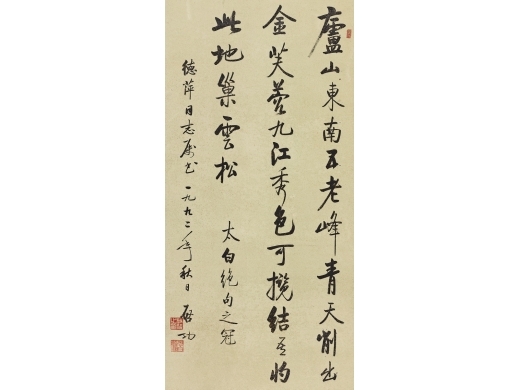 廬山東南五老峰青天削出
金芙蓉九江秀色可攬結吾將
此地巢雲松 太白絕句之冠
德萍同志屬書 一九九二年秋日 啓功